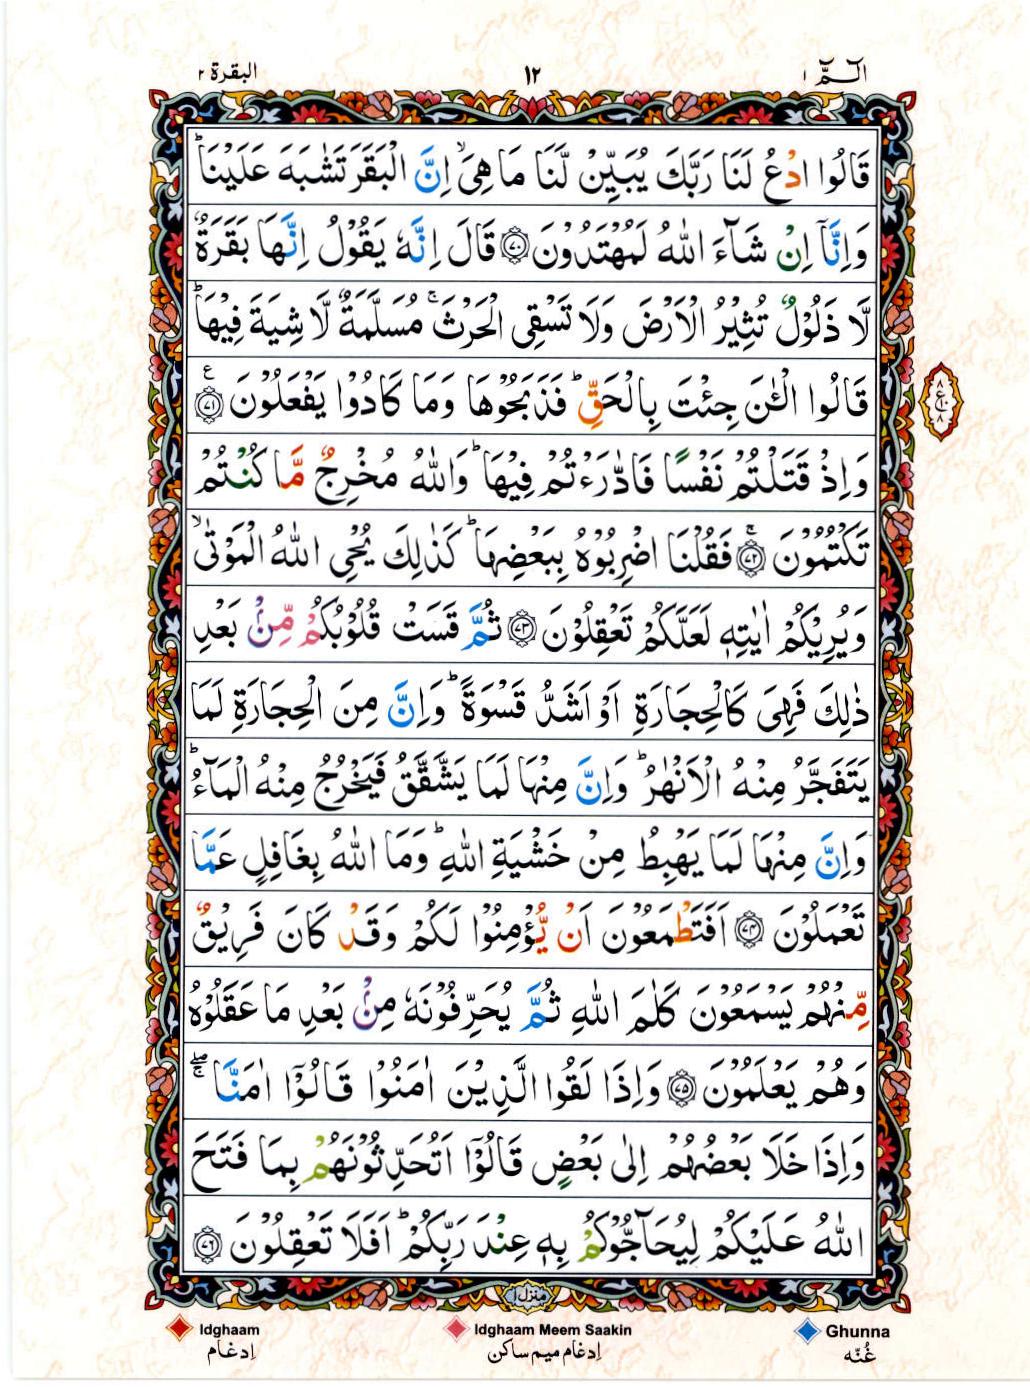 الٓمّٓ ١ ١٢ البقرة ٢
قَالُوا ادْعُ لَنَا رَبَّكَ يُبَيِّنْ لَّنَا مَا هِىَ ۙ اِنَّ الْبَقَرَ تَشٰبَهَ عَلَيْنَا ؕ
وَاِنَّاۤ اِنْ شَآءَ اللّٰهُ لَمُهْتَدُوْنَ ﴿۷۰﴾ قَالَ اِنَّهٗ يَقُوْلُ اِنَّهَا بَقَرَةٌ
لَّا ذَلُوْلٌ تُثِيْرُ الْاَرْضَ وَلَا تَسْقِى الْحَرْثَ ۚ مُسَلَّمَةٌ لَّا شِيَةَ فِيْهَا ؕ
قَالُوا الْـٰٔنَ جِئْتَ بِالْحَقِّ ؕ فَذَبَحُوْهَا وَمَا كَادُوْا يَفْعَلُوْنَ ﴿۷۱﴾ ع
٨ ع ١٠ ٨
وَاِذْ قَتَلْتُمْ نَفْسًا فَادّٰرَءْتُمْ فِيْهَا ؕ وَاللّٰهُ مُخْرِجٌ مَّا كُنْتُمْ
تَكْتُمُوْنَ ۚ ﴿۷۲﴾ فَقُلْنَا اضْرِبُوْهُ بِبَعْضِهَا ؕ كَذٰلِكَ يُحْىِ اللّٰهُ الْمَوْتٰى ۙ
وَيُرِيْكُمْ اٰيٰتِهٖ لَعَلَّكُمْ تَعْقِلُوْنَ ﴿۷۳﴾ ثُمَّ قَسَتْ قُلُوْبُكُمْ مِّنْۢ بَعْدِ
ذٰلِكَ فَهِىَ كَالْحِجَارَةِ اَوْ اَشَدُّ قَسْوَةً ؕ وَاِنَّ مِنَ الْحِجَارَةِ لَمَا
يَتَفَجَّرُ مِنْهُ الْاَنْهٰرُ ؕ وَاِنَّ مِنْهَا لَمَا يَشَّقَّقُ فَيَخْرُجُ مِنْهُ الْمَآءُ ؕ
وَاِنَّ مِنْهَا لَمَا يَهْبِطُ مِنْ خَشْيَةِ اللّٰهِ ؕ وَمَا اللّٰهُ بِغَافِلٍ عَمَّا
تَعْمَلُوْنَ ﴿۷۴﴾ اَفَتَطْمَعُوْنَ اَنْ يُّؤْمِنُوْا لَكُمْ وَقَدْ كَانَ فَرِيْقٌ
مِّنْهُمْ يَسْمَعُوْنَ كَلٰمَ اللّٰهِ ثُمَّ يُحَرِّفُوْنَهٗ مِنْۢ بَعْدِ مَا عَقَلُوْهُ
وَهُمْ يَعْلَمُوْنَ ﴿۷۵﴾ وَاِذَا لَقُوا الَّذِيْنَ اٰمَنُوْا قَالُوْۤا اٰمَنَّا ۖۚ
وَاِذَا خَلَا بَعْضُهُمْ اِلٰى بَعْضٍ قَالُوْۤا اَتُحَدِّثُوْنَهُمْ بِمَا فَتَحَ
اللّٰهُ عَلَيْكُمْ لِيُحَآجُّوْكُمْ بِهٖ عِنْدَ رَبِّكُمْ ؕ اَفَلَا تَعْقِلُوْنَ ﴿۷۶﴾
منزل ١
Idghaam Idghaam Meem Saakin Ghunna
اِدغام اِدغام میم ساکن غُنّه